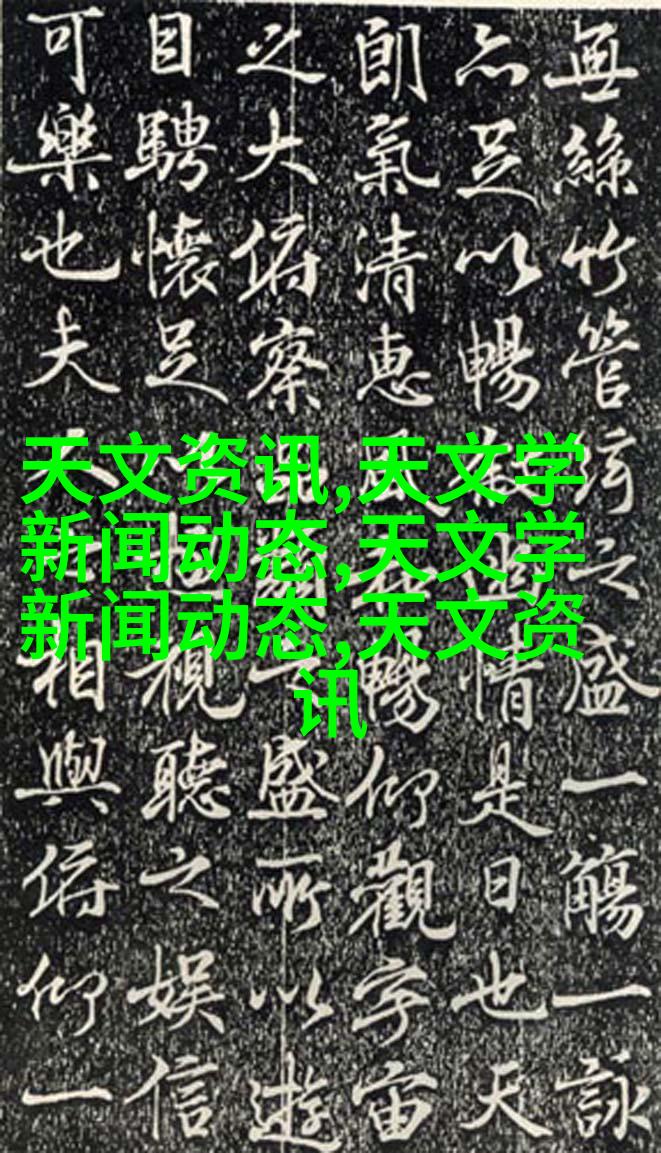 無絲竹管絃之盛一觴一詠
亦足以暢情是日也天
朗氣清惠風暢仰觀宇宙
之大俯察盛所以遊
目騁懷足視聽之娛信
可樂也夫相與俯仰一
天文资讯,天文学
新闻动态,天文学
新闻动态,天文资
讯